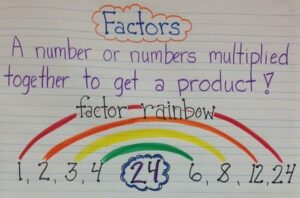 Factors
A number or numbers multiplied
together to get a product!
factor rainbow
1, 2, 3, 4 24 6, 8, 12, 24